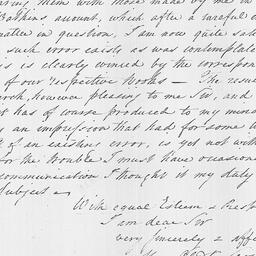 aring them with those made by me in
Balkins, amount, which after a careful
matter in question, I am now quite sat
such error exists as was contemplate
is is clearly evinced by the correspon
of our respective Books — The resu
arch, however pleasing to me Sir, and
t has of course produced to my mind
y an impression that had for some
of an existing error, is yet not with
for the trouble I must have occasione
communication I thought it my duty
subject —
With equal Esteem & Resp
I am dear Sir
very sincerely & affe